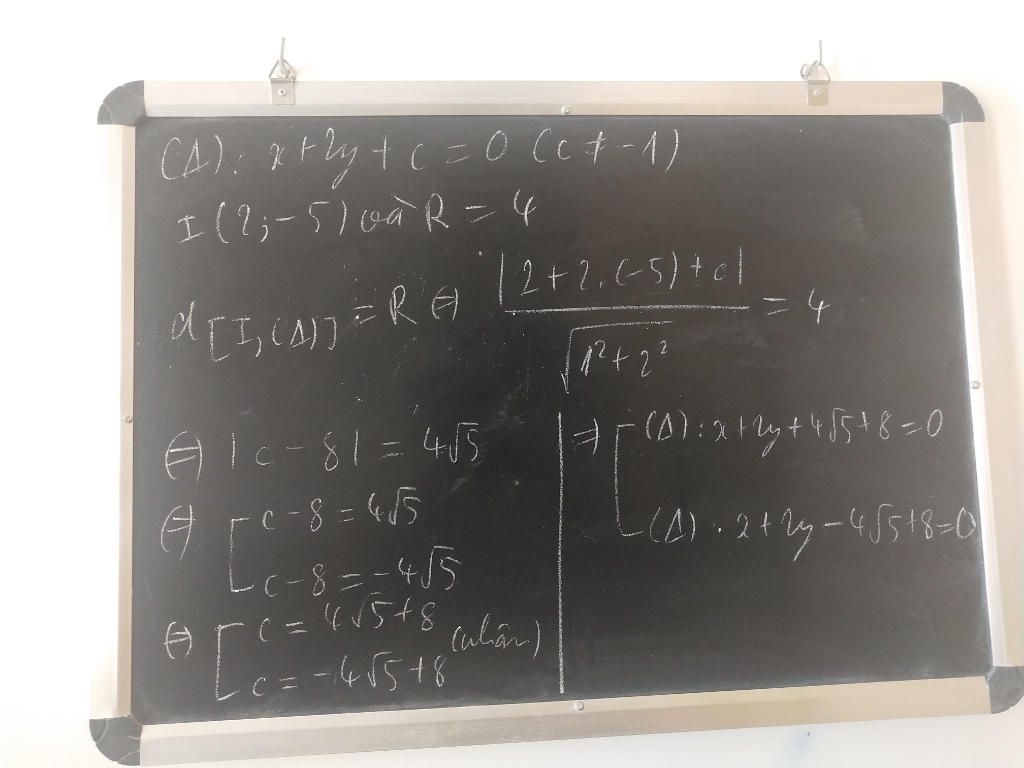 (Δ): x+2y+c=0 (c≠-1)
I(2;-5) và R=4
d[I,(Δ)]=R ⇔ |2+2.(-5)+c| / √(1²+2²) = 4
⇔ |c-8|=4√5
⇔ [ c-8=4√5
c-8=-4√5
⇔ [ c=4√5+8
c=-4√5+8 (nhận)
⇒ [ (Δ): x+2y+4√5+8=0
(Δ): x+2y-4√5+8=0